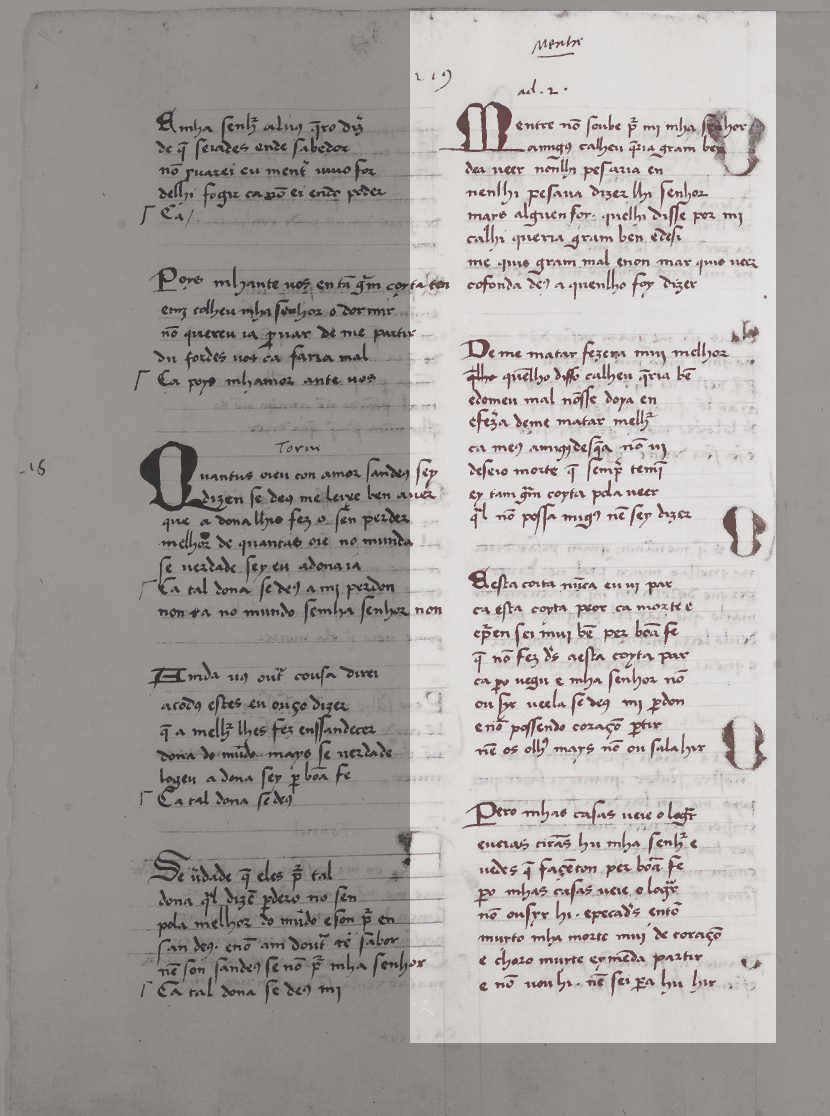 Amha senhʳ aluus q̃ro diz̃
de q̃ seiades ende sabedor
nõ p̱uarei eu ment̃ uiuo for
delhi fogir ca nõ ei endo poder
Ca/.
Poys mhante uos en tã gñm coyta ten
em calheu mha senhor o dormir
nõ quereu ia p̱uar de me partir
du fordes uos ca faria mal
Ca poys mhamor ante uos
Torni
-18
Quantus oieu con amor sandeꝯ sey
dizen se deꝯ me leixe ben auer
que a dona lhis fez o sẽn perder
melhor de quantas oie no munda
se uerdade sey eu adona ia
Ca tal dona se deꝯ a mi perdon
non ea no mundo semha senhor non
Ainda uꝯ out̃ cousa direi
atodꝯ estes eu ouço dizer
q̃ a melhʳ lhes fez enssandecer
dona do mũdo mays se uerdade
logeu a dona sey p̱ bõa fe
Ca tal dona se deꝯ
Se ũdade q̃ eles p̃ tal
dona q̃l dizẽ p̱dero no sen
pola melhor do mũdo eson p̃ en
san deꝯ. enõ am dout̃ rẽ sabor
nẽ son sandeꝯ se nõ p̃ mha senhor
Ca tal dona se deꝯ mi
Menhi
219
ad. 2.
Mentre nõ soube p̃ mi mha senhor
amigus calheu q̃ria gram ben
dea ueer nonlhi pesaria en
nenlhi pesaua dizer lhi senhor
mays alguen foy. quelhi disse por mi
calhi queria gram ben edesi
me quis gram mal enon mar quis ueer
cofonda deꝯ a quenlho foy dizer
De me matar fezera mui melhor
quẽlho disso calheu q̃ria bẽ
edomeu mal nõsse doya en
efez̃a deme matar melhʳ
ca meꝯ amigꝯ desq̃a nõ ui
deseio morte q̃ semp̃ temi
ey tam gñm coyta pola ueer
q̃l nõ possa migꝯ nẽ sey dizer
Aesta coita nũca eu ui par
ca esta coyta peor ca morte e
ep̃en sei mui bẽ per bõa fe
q̃ nõ fez d̃s aesta coyta par
ca p̱o uegu e mha senhor nõ
ou syr ueela se deꝯ mi p̱don
e nõ possendo coraçõ p̱tir
nẽ os olhꝯ mays nõ ou sala hir
Pero mhas casas ueie o logr̃
eueias cirãs hu mha senhʳ e
uedes q̃ façẽton per bõa fe
p̱o mhas casas ueie o logr̃
nõ ousyr hi. epecadꝯ entõ
muyto mha morte mui de coraçõ
e choro muyte ermẽda partir
e nõ uou hi. nẽ sei p̱a hu hir